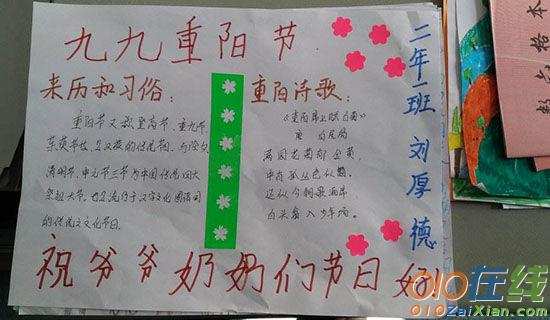 九九重阳节
来历和习俗：
重阳节又称登高节、重九节、
茱萸节也是汉族的传统节日，与除夕
清明节、中元节三节为中国传统四大
祭祖大节。也是流行于汉字文化圈诸国
的传统文化节日。
重阳诗歌：
满园花菊郁金黄，
中有孤丛色似霜。
还似今朝歌酒席
白头翁入少年场。
二年一班 刘厚德
祝爷爷奶奶们节日好
010在线
010ZaiXian.com